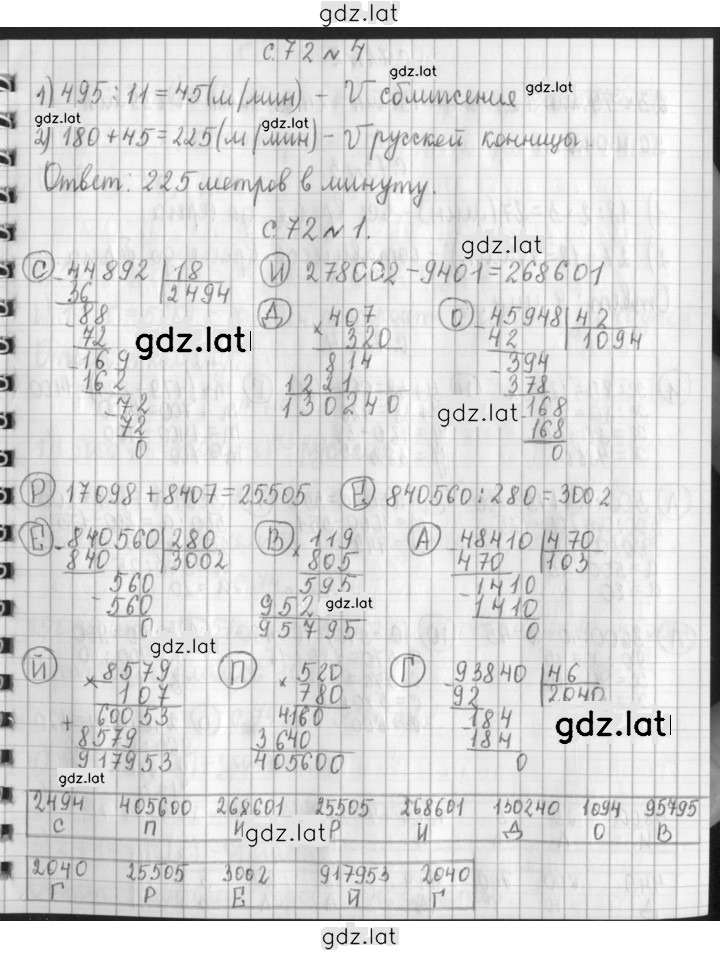 gdz.lat
с.72 № 4
gdz.lat
1) 495 : 11 = 45 (м/мин) - V сближения gdz.lat
gdz.lat gdz.lat
2) 180 + 45 = 225 (м/мин) - V русской конницы
Ответ: 225 метров в минуту.
с.72 № 1.
gdz.lat
С 44892 | 18 И 278002 - 9401 = 268601
36 2494
88 Д 407 О 45948 | 42
72 gdz.lat × 320 42 1094
169 814 394
162 1221 378
72 130240 gdz.lat 168
72 168
0 0
Р 17098 + 8407 = 25505 Е 840560 : 280 = 3002
Е 840560 | 280 В 119 А 48410 | 470
840 3002 × 805 470 103
560 595 1410
560 952 gdz.lat 1410
0 95795 0
gdz.lat
Й 8579 П 520 Г 93840 | 46
× 107 × 780 92 2040
+ 60053 4160 184 gdz.lat
8579 3640 184
917953 405600 0
gdz.lat
2494 405600 268601 25505 268601 130240 1094 95795
С П И Р И Д О В
gdz.lat
2040 25505 3002 917953 2040
Г Р Е Й Г
gdz.lat